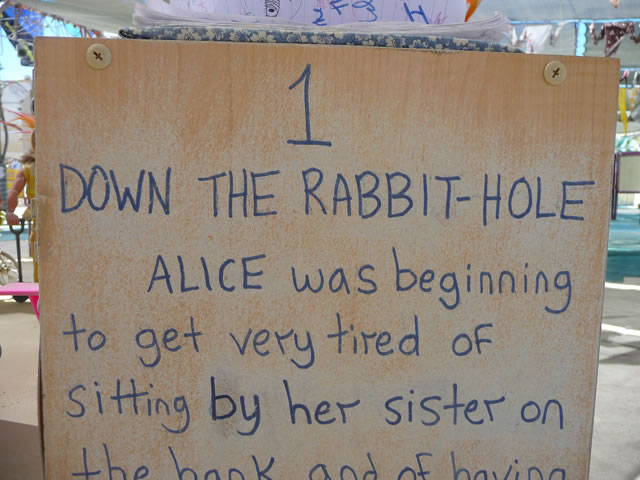 2 F g H
1
DOWN THE RABBIT-HOLE
ALICE was beginning
to get very tired of
sitting by her sister on
the bank and of having